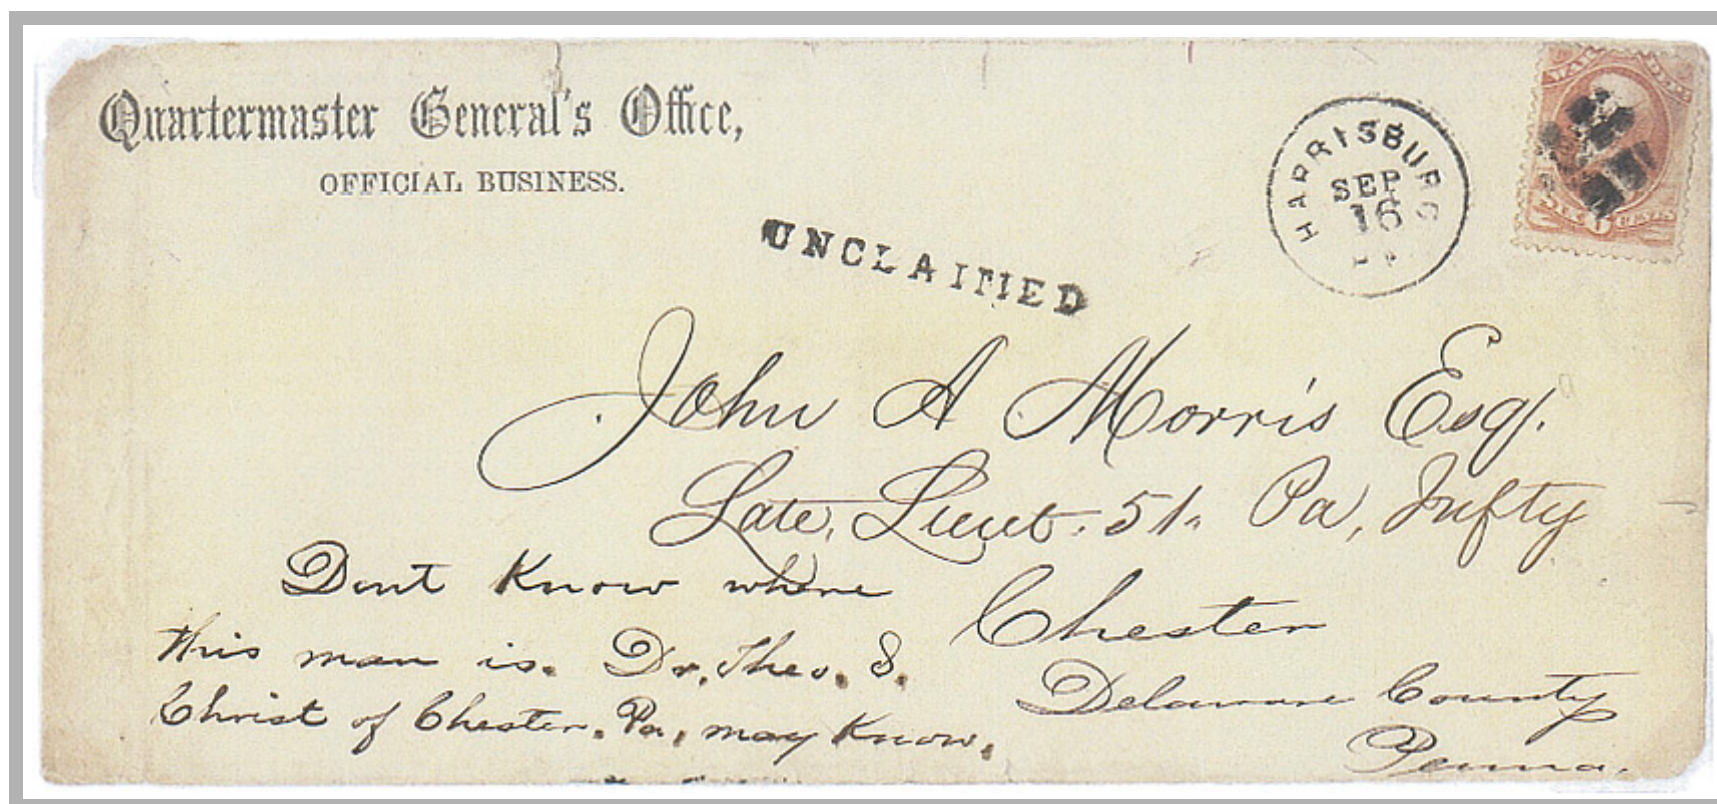 Quartermaster General's Office,
OFFICIAL BUSINESS.
HARRISBURG
SEP
16
WAR DEP
SIX 6 CENTS
UNCLAIMED
John A Morris Esq.
Late, Lieut. 51. Pa, Infty
Chester
Delaware County
Penna.
Dont Know where
this man is. Dr. Theo. S.
Christ of Chester. Pa, may Know.